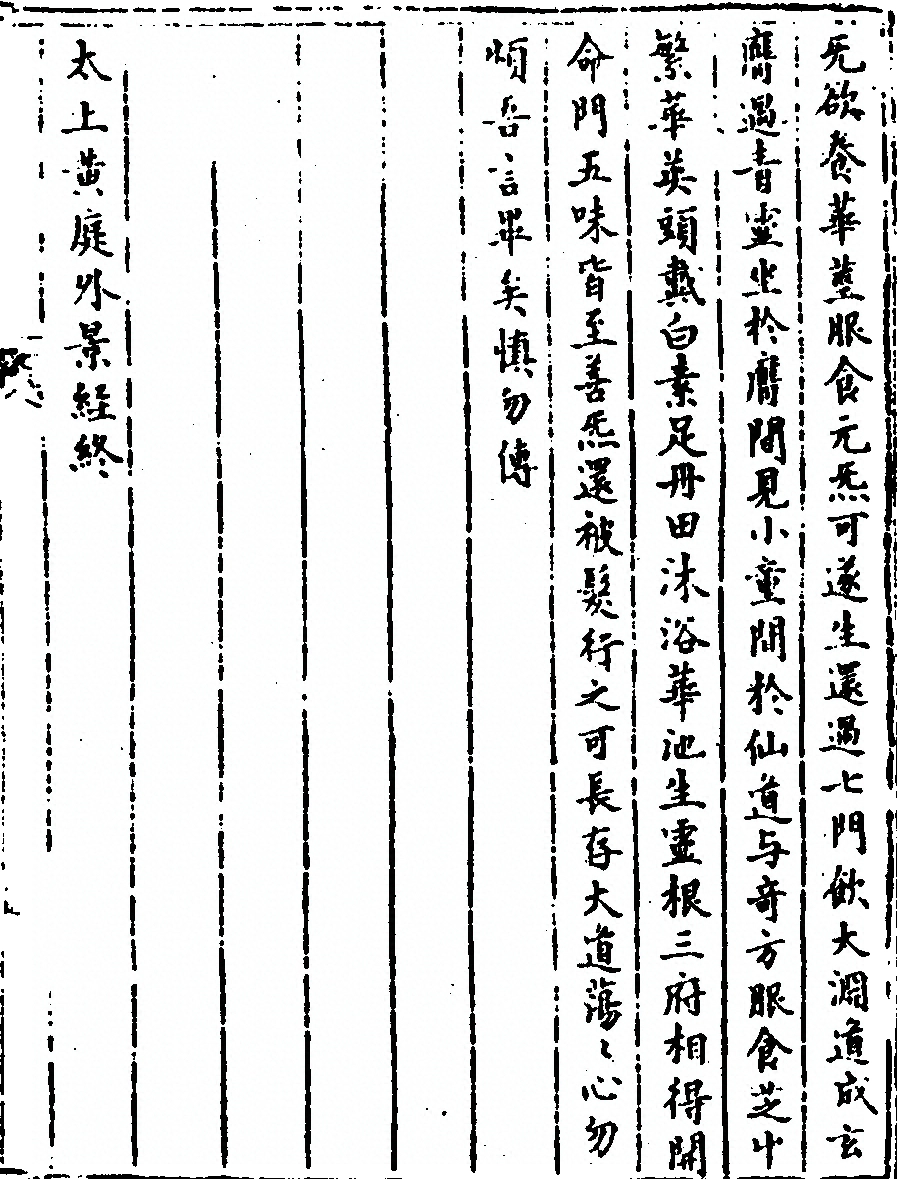 无欲養華莖服食元炁可遂生還過七門飲大淵道成玄
膺過青靈坐於膺間見小童問於仙道与奇方服食芝屮
繁華英頭戴白素足丹田沐浴華池生靈根三府相得開
命門五味皆至善炁還被髮行之可長存大道蕩〻心勿
煩吾言畢矣慎勿傳
太上黃庭外景經終